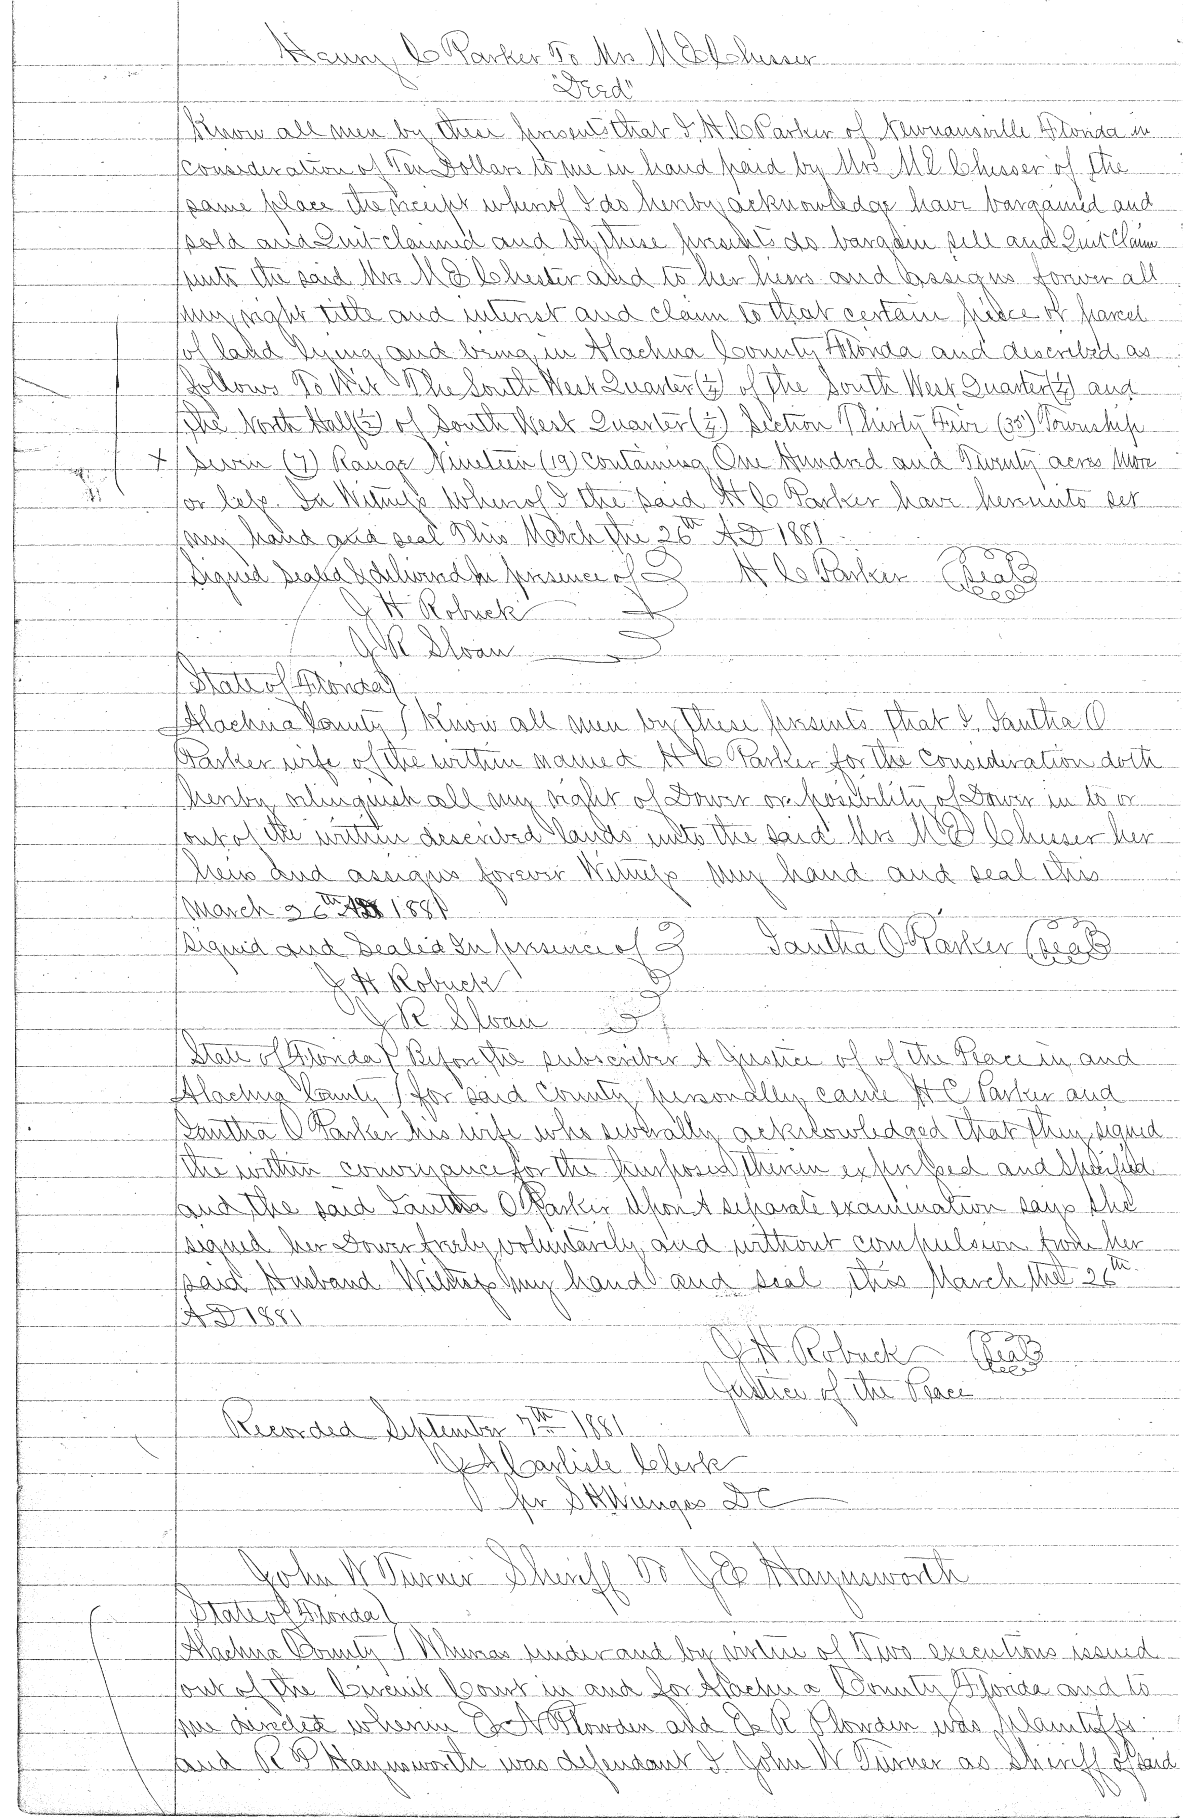 Henry C Parker To Mrs M E Chesser
"Deed"
Know all men by these presents that I H C Parker of Newnansville Florida in
consideration of Ten Dollars to me in hand paid by Mrs M E Chesser of the
same place the receipt wherof I do hereby acknowledge have bargained and
sold and Quit claimed and by these presents do bargain sell and Quit Claim
unto the said Mrs M E Chesser and to her heirs and assigns forever all
my right title and interest and claim to that certain piece or parcel
of land lying and being in Alachua County Florida and described as
follows To Wit The South West Quarter (¼) of the South West Quarter (¼) and
the North Half (½) of South West Quarter (¼) Section Thirty Five (35) Township
x Seven (7) Range Nineteen (19) containing One Hundred and Twenty acres more
or less. In Witness Wherof I the said H C Parker have hereunto set
my hand and seal This March the 26th AD 1881
Signed Sealed & delivered In presence of } H C Parker (Seal)
J H Robuck
J R Sloan
State of Florida }
Alachua County } Know all men by These presents that I, Iantha O
Parker wife of the within named H C Parker for the consideration doth
hereby relinquish all my right of Dower or possibility of Dower in to or
out of the within described lands unto the said Mrs M E Chesser her
heirs and assigns forever Witness my hand and seal this
March 26th AD 1881
Signed and Sealed In presence of } Iantha O Parker (Seal)
J H Robuck
J R Sloan
State of Florida } Before the subscriber A Justice of of the Peace in and
Alachua County } for said County personally came H C Parker and
Iantha O Parker his wife who severally acknowledged that they signed
the within conveyance for the purposes therein expressed and specified
and the said Iantha O Parker upon A separate examination says she
signed her Dower freely, voluntarily and without compulsion from her
said Husband Witness my hand and seal this March the 26th
AD 1881
J H Robuck (Seal)
Justice of the Peace
Recorded September 7th 1881
J A Carlisle Clerk
pr S H Wienges DC
John W Turner Sheriff To J E Haynsworth
State of Florida }
Alachua County } Whereas under and by virtue of Two executions issued
out of the Circuit Court in and for Alachua County Florida and to
me directed wherein E N Plowden and E R Plowden was plaintiffs
and R P Haynsworth was defendant I John W Turner as Sheriff of said